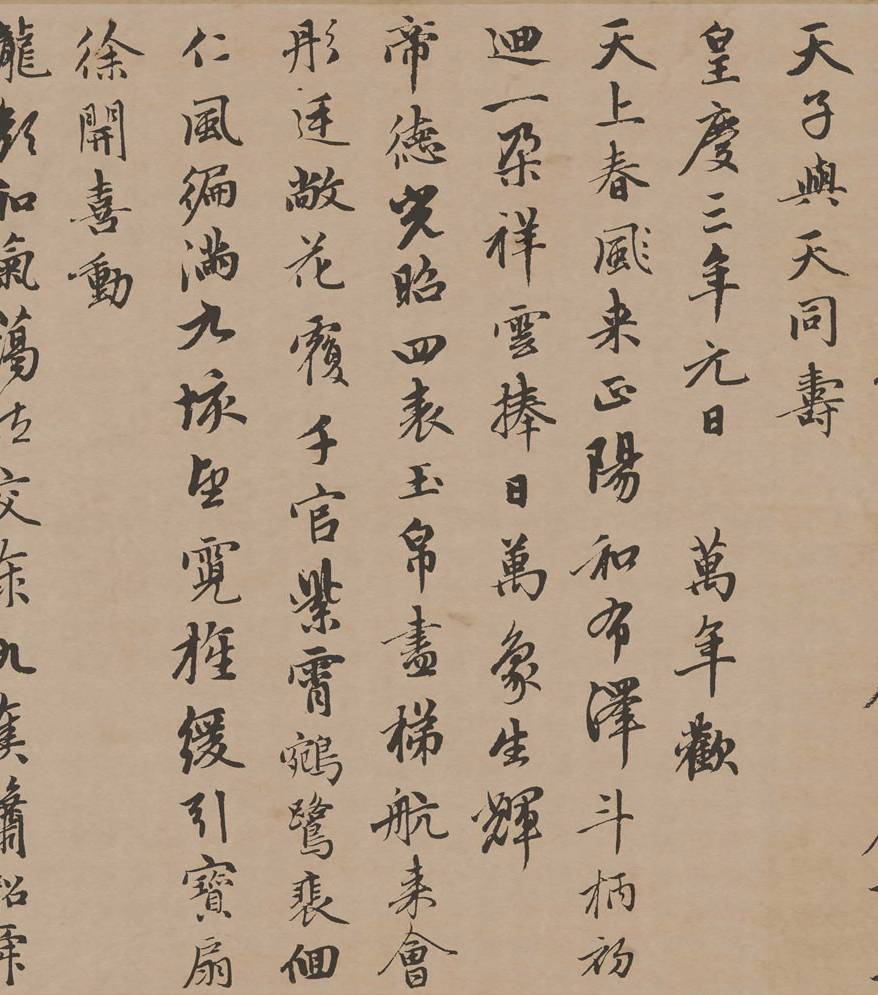 天子與天同壽
皇慶三年元日 萬年歡
天上春颷来正陽和布澤斗柄初
迴一朶祥雲捧日萬象生輝
帝德光昭四表玉帛盡梯航来會
彤廷敞花覆千官紫霄鵷鷺裴佪
仁風徧滿九垓望霓旌緩引寶扇
徐開喜動
龍顔和氣藹然交泰九奏簫韶舜